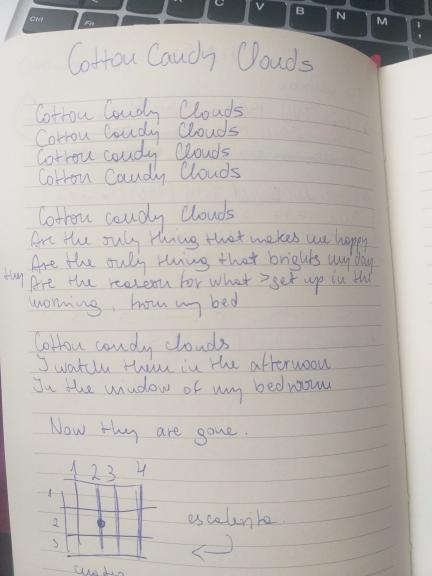 Ctrl
Fn
C
V
B
N
M
Cotton Candy Clouds
Cotton Candy Clouds
Cotton Candy Clouds
Cotton candy Clouds
Cotton Candy Clouds
Cotton candy Clouds
Are the only thing that makes me happy
Are the only thing that brights my day
they Are the reason for what > get up in the
morning, from my bed
Cotton candy clouds
I watch them in the afternoon
In the window of my bedroom
Now they are gone.
1 2 3 4
1
2
3
escalerita.